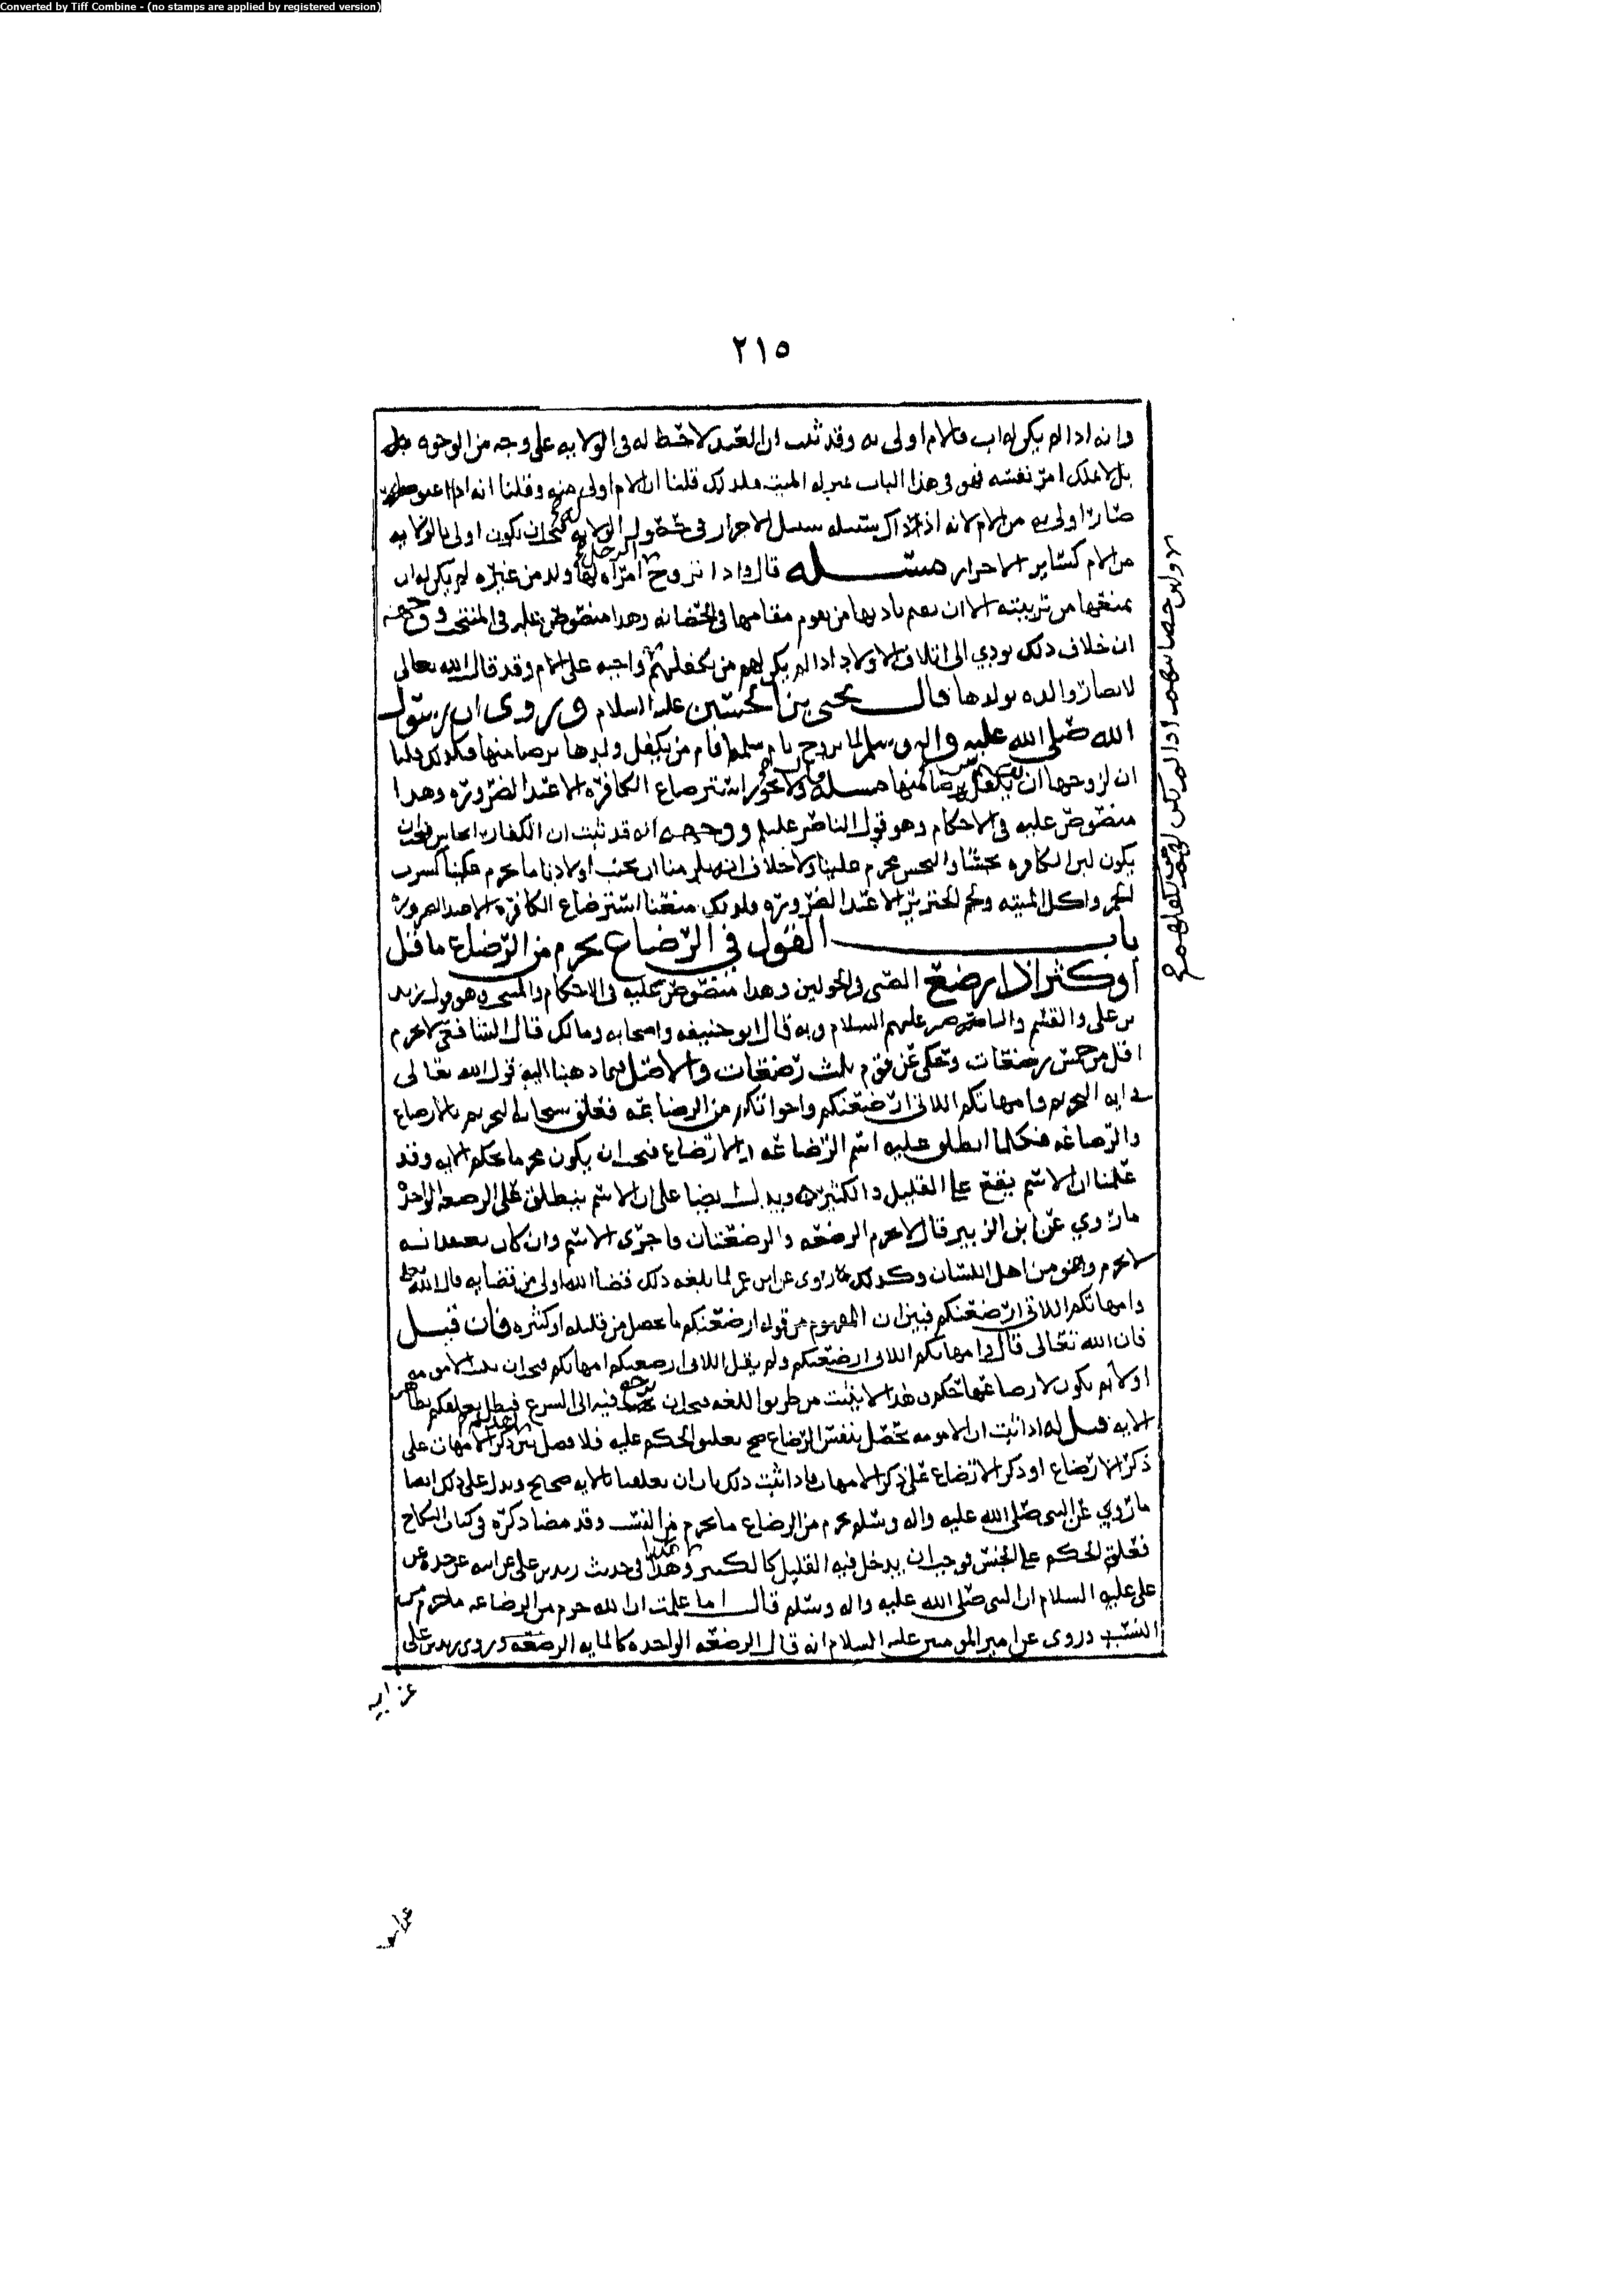 Converted by Tiff Combine - (no stamps are applied by registered version)
٢١٥
وانه اذا لم يكن له اب فالام اولى به وقد ثبت ان العبد لا حظ له في الولايه على وجه من الوجوه
بل لا يملك امر نفسه فهو في هذا الباب بمنزله الميت فلذلك قلنا ان الام اولى منه وقلنا انه اذا اعتق
صار اولى به من الام لانه اذ ذاك سبيله سبيل الاحرار في حصول الولايه فيجب ان يكون اولى بالولايه
من الام كساير الاحرار مسئله قال واذا تزوج الرجل امراه لها ولد من غيره لم يكن له ان
يمنعها من تربيته الا ان يقيم بازيها من يقوم مقامها في الحضانه وهذا منصوص عليه في المنتخب ووجهه
ان خلاف ذلك يودي الى اتلاف الاولاد اذا لم يكن لهم من يكفلهم واجبه على الام وقد قال الله تعالى
لا تضار والده بولدها قال يحيى بن الحسين عليه السلام وروى ان رسول
الله صلى الله عليه واله وسلم لما تزوج بام سلمه اقام من يكفل ولدها برضا منها فكذلك قلنا
ان لزوجها ان يكفل برضا منها مسله ولا يجوز استرضاع الكافره الا عند الضروره وهذا
منصوص عليه في الاحكام وهو قول الناصر عليلم ووجهه انه قد ثبت ان الكفار انجاس فيجب ان
يكون لبن الكافره نجسا والنجس محرم علينا ولا خلاف انه يلزمنا ان نجنب اولادنا ما يحرم علينا كشرب
الخمر واكل الميته ولحم الخنزير الا عند الضروره فلذلك منعنا استرضاع الكافره الا عند الضروره
باب القول في الرضاع يحرم من الرضاع ما قل
او كثر اذا ارضع الصبي في الحولين وهذا منصوص عليه في الاحكام والمنتخب وهو قول زيد
بن علي والقسم والناصر عليهم السلام وبه قال ابو حنيفه واصحابه ومالك قال الشافعي لا يحرم
اقل من خمس رضعات وحكى عن قوم ثلث رضعات والاصل فيما ذهبنا اليه قول الله تعالى
في ايه التحريم وامهاتكم اللاتي ارضعنكم واخواتكم من الرضاعه فعلق سبحانه التحريم بالارضاع
والرضاعه فكلما انطلق عليه اسم الرضاعه او الارضاع فيجب ان يكون محرما بحكم الايه وقد
علمنا ان الاسم يقع على القليل والكثير ويدل ايضا على ان الاسم ينطلق على الرضعه الواحده
ما روي عن ابن الزبير قال لا يحرم الرضعه والرضعتان فاجرى الاسم وان كان يعتقد انه
لا يحرم وهو من اهل اللسان وكذلك ما روى عن ابن عمر لما بلغه ذلك قضا الله اولى من قضايه قال الله تعالى
وامهاتكم اللاتي ارضعنكم فبين ان المفهوم من قوله ارضعنكم ما يحصل من قليله او كثيره فان قيل
فان الله تعالى قال وامهاتكم اللاتي ارضعنكم ولم يقل اللاتي ارضعنكم امهاتكم فيجب ان تثبت الامومه
اولا ثم يكون لارضاعها حكم وهذا لا يثبت من طريق اللغه فيجب ان يرجع فيه الى الشرع فبطل تعلقكم بظاهر
الايه قيل له اذا ثبت ان الامومه تحصل بنفس الرضاع صح تعليق الحكم عليه فلا فصل بين تقديم ذكر الامهات على
ذكر الارضاع او ذكر الارضاع على ذكر الامهات فاذا ثبت ذلك بان ان تعلقنا بالايه صحيح ويدل على ذلك ايضا
ما روي عن النبي صلى الله عليه واله وسلم يحرم من الرضاع ما يحرم من النسب وقد مضا ذكره في كتاب النكاح
فعلق الحكم على الجنس فوجب ان يدخل فيه القليل كالكثير وهذا في حديث زيد بن علي عن ابيه عن جده عن
علي عليه السلام ان النبي صلى الله عليه واله وسلم قال اما علمت ان الله حرم من الرضاعه ما حرم من
النسب وروى عن امير المومنين عليه السلام انه قال الرضعه الواحده كالمايه الرضعه وروى زيد بن علي
عن ابيه
وليس حضانتهم اذا لم يكن لهم من يكفلهم